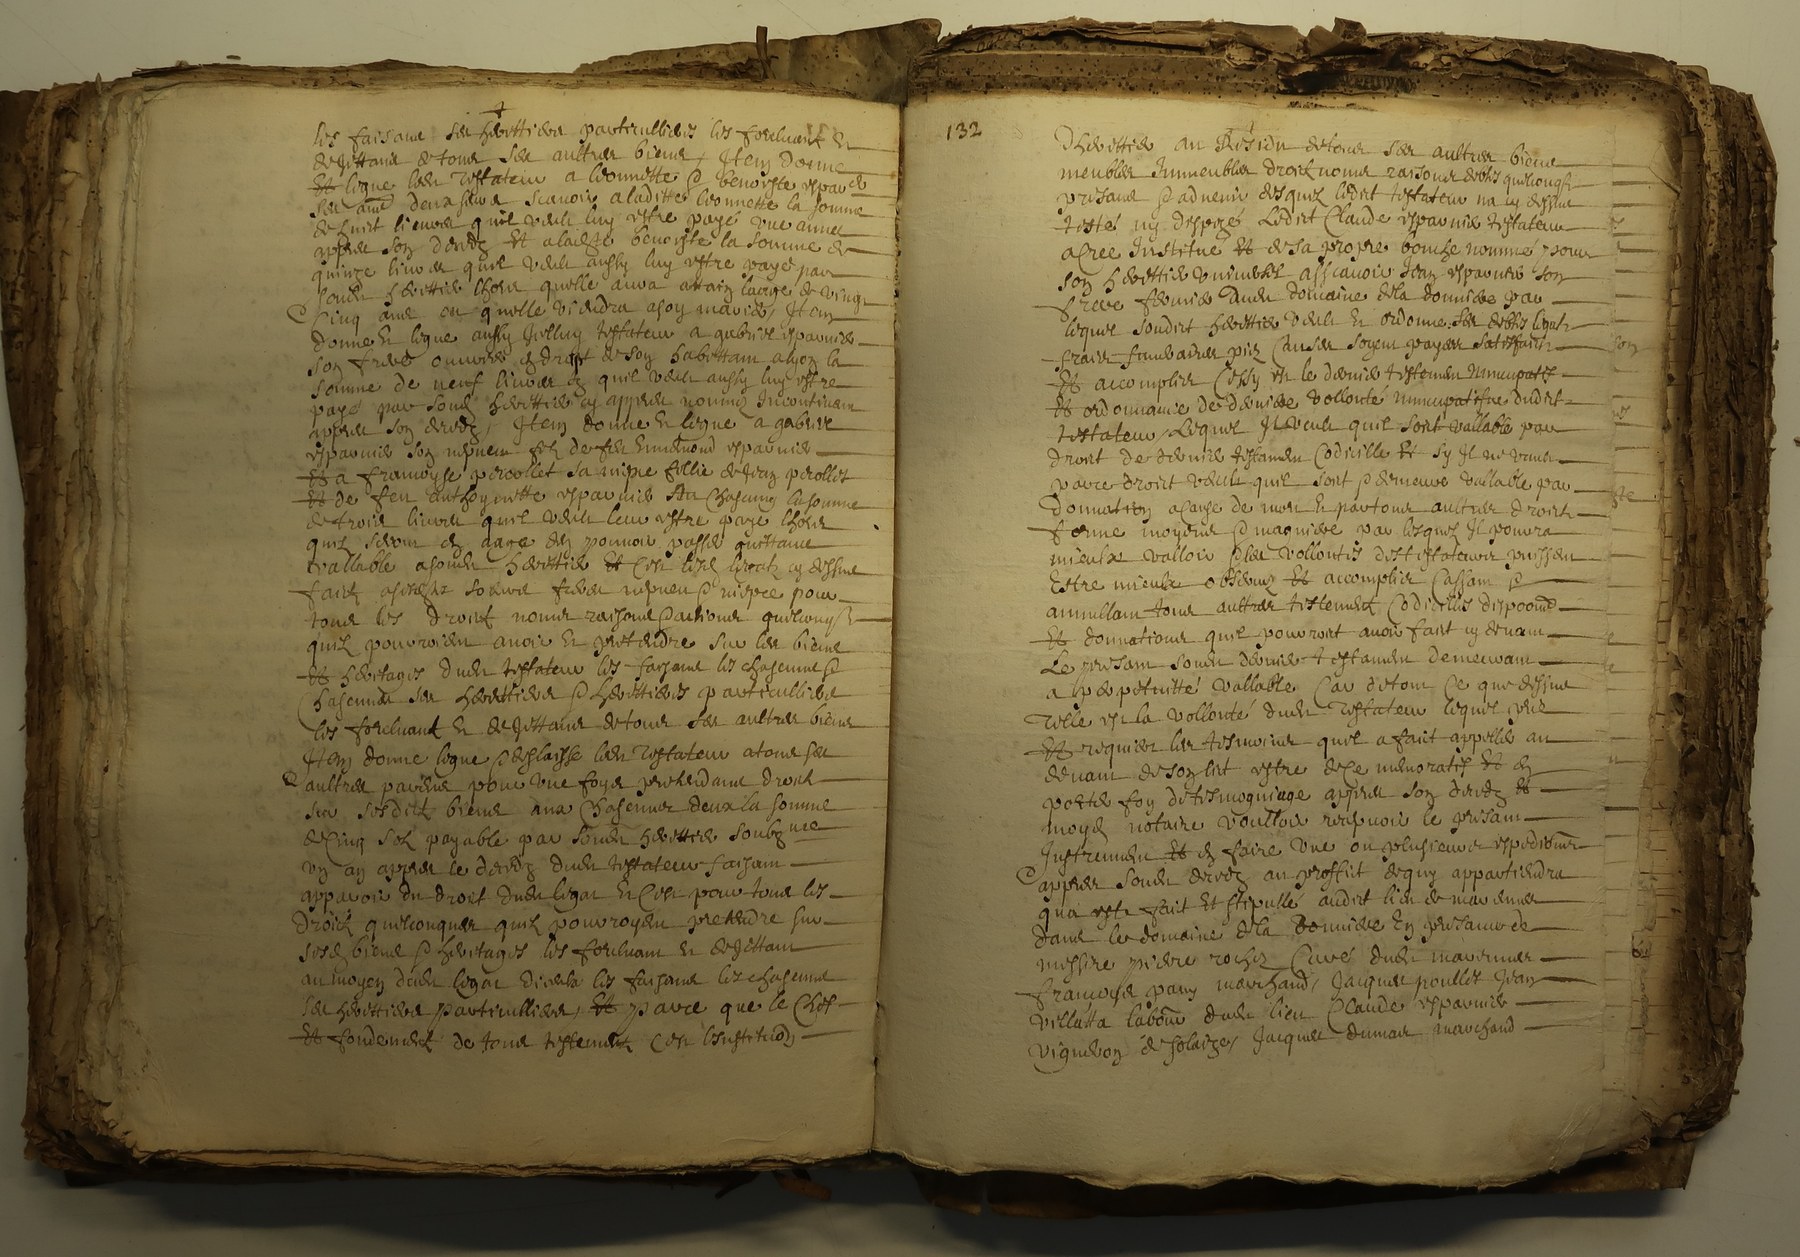 les faisant ses heritiers particulliers les forcluant et
dejettant de tous ses aultres biens / Item donne
et legue ledit testateur a leonnette et benoiste esparnier
ses deux seurs scavoir a ladite leonnette la somme
de huit livres quil veult luy estre paye une annee
appres son deces et a ladite benoiste la somme de
quinze livres quil veult aussy luy estre paye par
sondit heritier lhors quelle aura attain laage de vingt
cinq ans ou quelle viendra a soy marier / Item
donne et legue aussy icelluy testateur a gabriel esparnier
son frere oultre et droit de son habittation a lyon la
somme de neuf livres quil veult aussy luy estre
paye par sondit heritier cy appres nomme incontinent
appres son deces / Item donne et legue a gabriel
esparnier son nepveu filz de feu Ennemond esparnier
et a francoyse perollet sa niepce fillie de Jean perollet
et de feu anthoynette esparnier a chascung la somme
de trois livres quil veult leur estre paye lhors
quilz seront en aage de pouvoir passer quittance
vallable a sondit heritier et cest lesdits legatz cy dessus
faictz a sesdits soeurs freres nepveu et niepce pour
tous les droitz noms raisons et actions quelconques
quilz pourroient avoir et pretendre sur les biens
et heritages dudit testateur les faisant les chascuns et
chascunes ses heritiers et heritieres particulliers
les forcluant et dejettant de tous ses aultres biens
Item donne legue et delaisse ledit testateur a tous ses
aultres parens pour une foys pretendant droit
sur sesdits biens a ung chascung deux la somme
de cinq solz payable par sondit heritier soubz nomme
ung an appres le deces dudit testateur faisant
apparoir du droit dudit legat et cest pour tous les
droitz quelconques quilz pourroyent pretendre sur
sesdits biens et heritages les forcluant et dejettant
au moyen dudit legat diceulx les faisant les chascuns
ses heritiers particulliers / et parce que le chef
et fondement de tous testements cest linstitution
132
dheritier au residu de tous ses aultres biens
meubles immeubles droitz noms raisons debtes quelconques
presans et advenir desquelz ledit testateur na cy dessus
teste ny dispoze Ledit Claude esparnier testateur
a cree institue et de sa propre bouche nomme pour
son heritier universel asscavoir Jean esparnier son
frere fermier dudit domaine de la donniere par
lequel sondit heritier veult et ordonne ses debtes legatz
fraiz funeraires piez causes soyent payees satisfaitz
et accomplies Cessy est le dernier testement nuncupatif
et ordonnance de derniere vollonte nuncupative dudit
testateur / Lequel Il veult quil soit vallable par
droit de dernier testament Codicille et sy Il ne vault
par ce droit veult quil soit et demeure vallable par
donnation a cause de mort et par tous aultres droitz
forme moyens et magniere par lesquelz Il pourra
mieulx valloir et ses vollontes destestateurs puissent
Estre mieulx observez et accomplies Cassant et
annullant tous aultres testements Codicilles dispozitions
et donnations quil pourroit avoir fait cy devant
Le presant sondit dernier testament demeurant
a perpetuitte vallable Car de tout ce que dessus
Telle est la vollonte dudit testateur lequel prie
et requier les tesmoins quil a fait appelle au
devant de son lict estre de ce memoratifz et en
porter foy de tesmoignage appres son deces et
moy notaire voulloir recepvoir le presant
Instrument et en faire une ou plusieurs expeditions
appres sondit deces au proffict de quy appartiendra
qua este fait et stipulle audit lieu de marennes
dans le domaine de la donniere En presance de
messire piere rochez Cure dudit marennes
francoys pany marchand / Jacques poullet Jean
villatta laboureur dudit lieu Claude esparnier
vigneron de solaize / Jacques dumas marchand